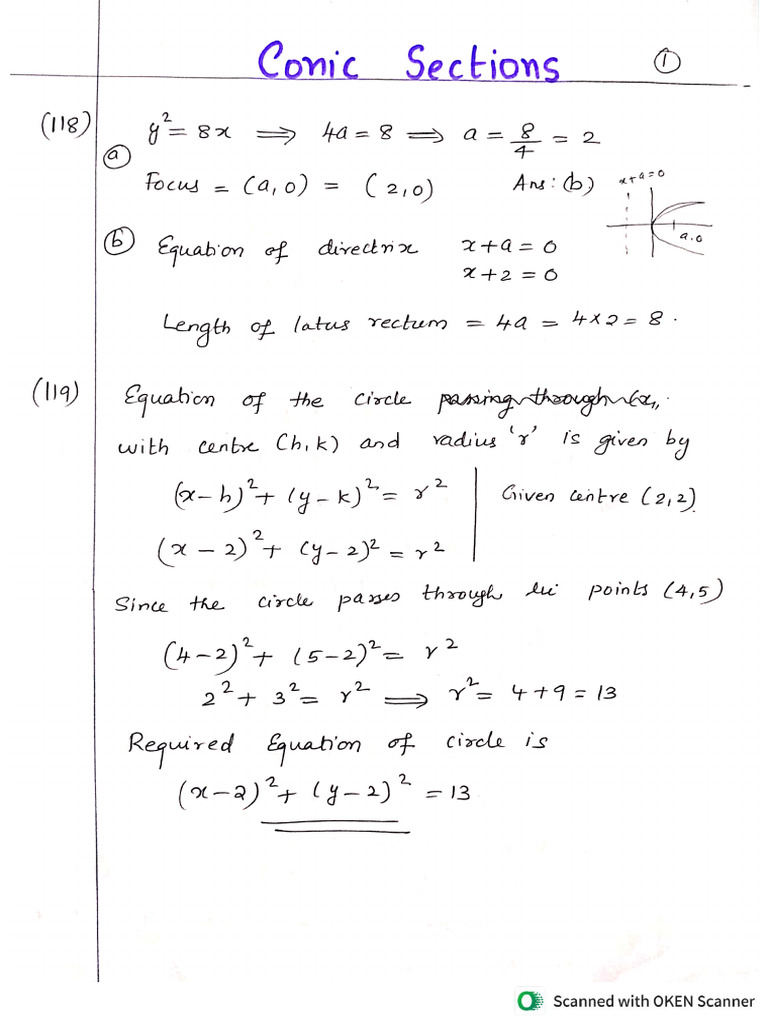 Conic Sections ①
(118) y² = 8x ⟹ 4a = 8 ⟹ a = 8/4 = 2
ⓐ
Focus = (a,0) = (2,0) Ans: (b) x+a=0
a.0
ⓑ Equation of directrix x+a = 0
x+2 = 0
Length of latus rectum = 4a = 4×2 = 8.
(119) Equation of the circle passing through (x,,
with centre (h,k) and radius 'r' is given by
(x-h)² + (y-k)² = r² | Given centre (2,2).
(x-2)² + (y-2)² = r²
Since the circle passes through points (4,5)
(4-2)² + (5-2)² = r²
2² + 3² = r² ⟹ r² = 4+9 = 13
Required Equation of circle is
(x-2)² + (y-2)² = 13
Scanned with OKEN Scanner